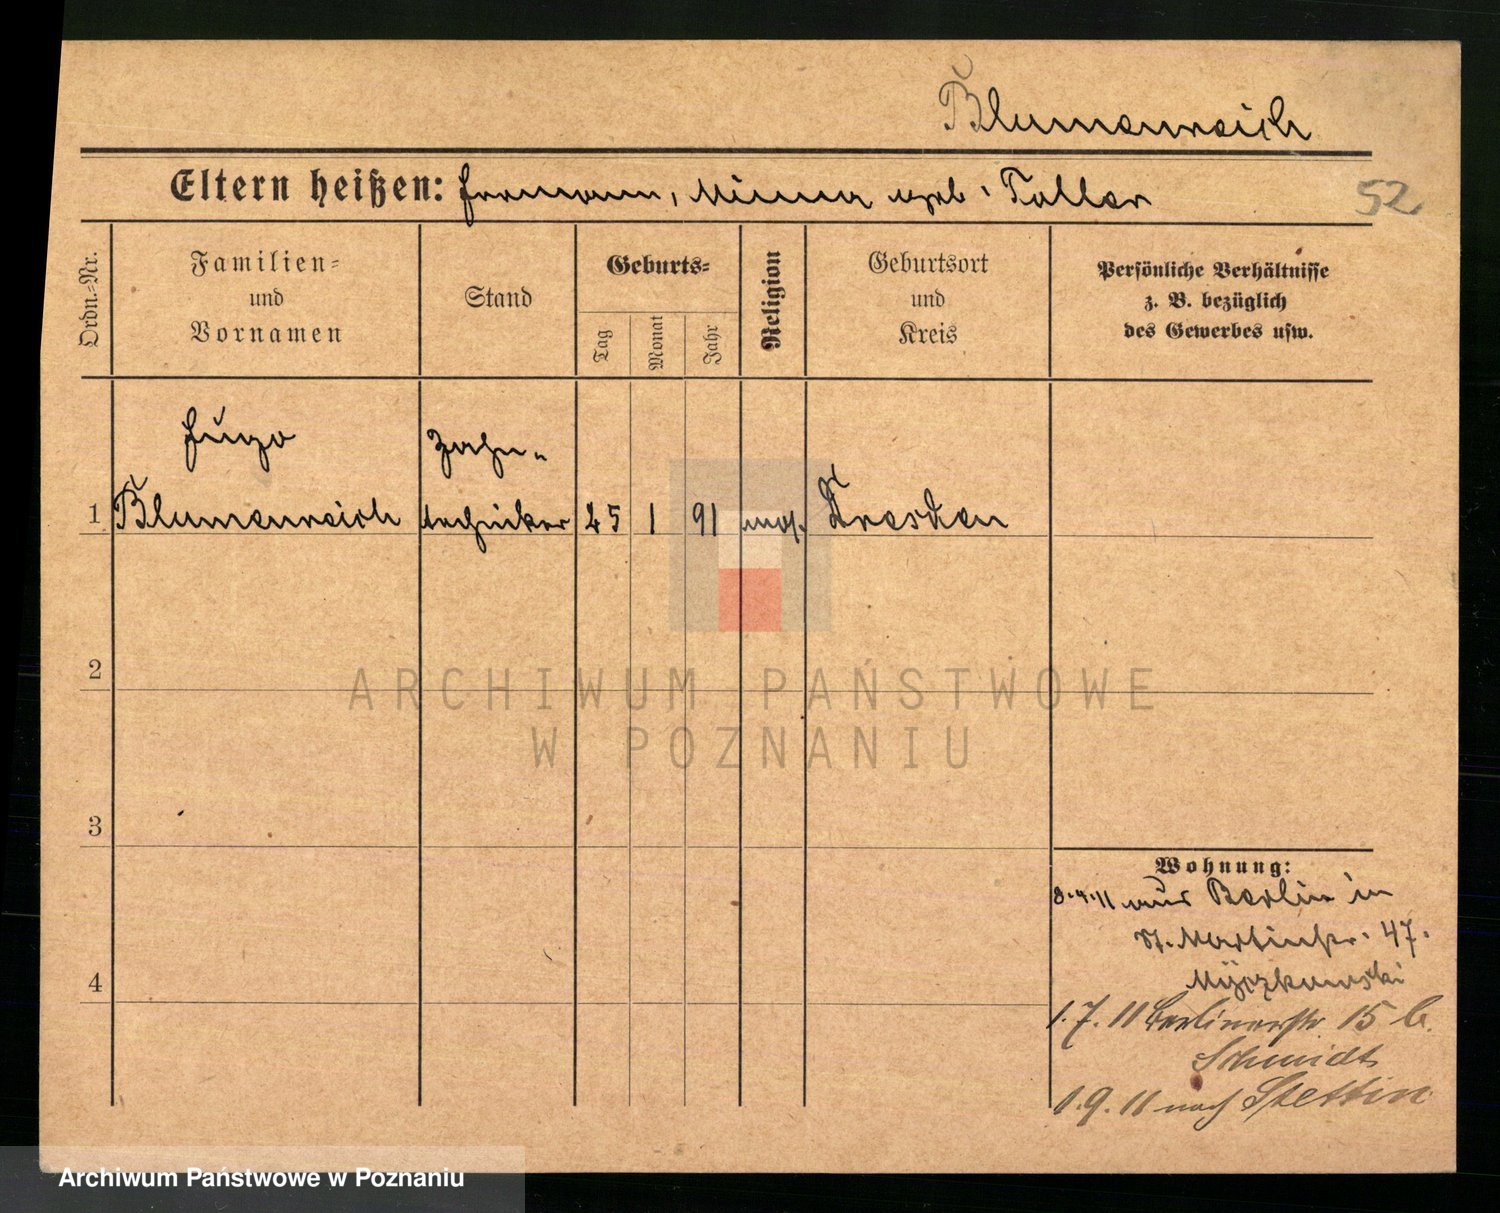 Blumenreich
Eltern heißen: Hermann, Minna geb. Taller
52
Ordn.-Nr.
Familien-
und
Vornamen
Stand
Geburts-
Tag
Monat
Jahr
Religion
Geburtsort
und
Kreis
Persönliche Verhältnisse
z. B. bezüglich
des Gewerbes usw.
Hugo Zahn-
1 Blumenreich techniker 25 1 91 mos. Dresden
2
ARCHIWUM PAŃSTWOWE
W POZNANIU
3
Wohnung:
8.4.11 aus Berlin in
St. Martinstr. 47.
4
1.7.11 Berlinerstr 15 b.
Schmidt
1.9.11 nach Stettin
Archiwum Państwowe w Poznaniu